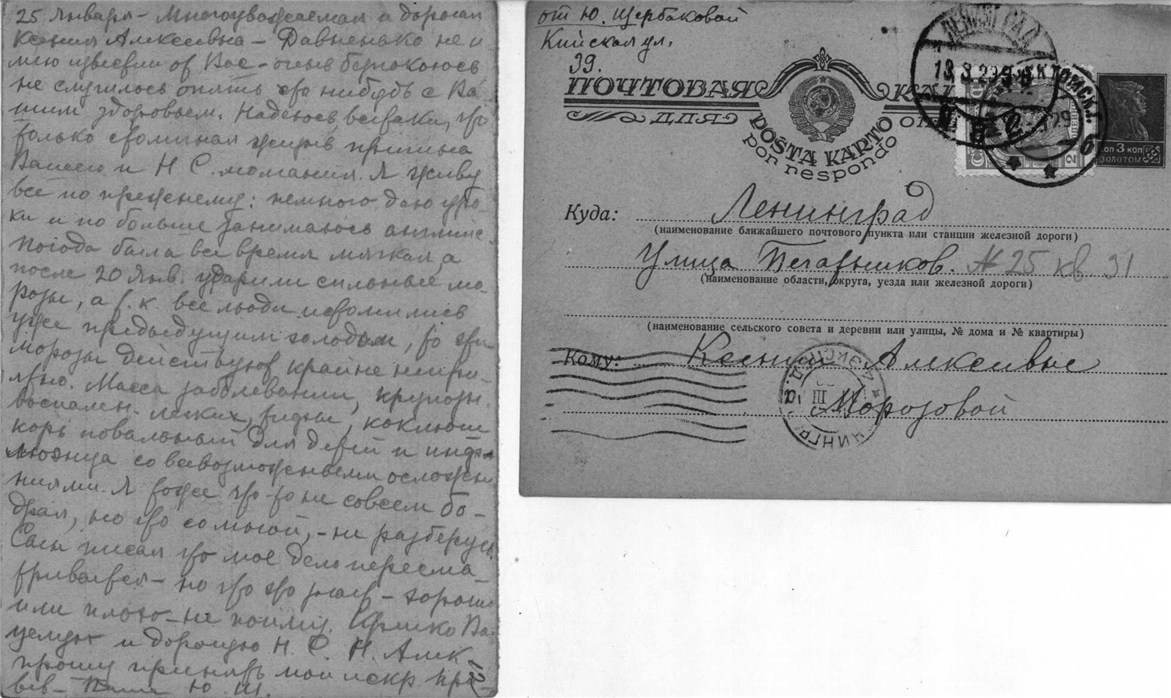 25 января – Многоуважаемая и дорогая
Ксения Алексеевна – Давненько не и-
мею известий от Вас – очень беспокоюсь
не случилось опять что нибудь с Ва-
шим здоровьем. Надеюсь всетаки, что
только столичная жизнь причина
Вашего и Н С. молчания. Я живу
все по прежнему: немного даю уро-
ки и по больше занимаюсь английс.
Погода была все время мягкая, а
после 20 Янв. ударили сильные мо-
розы, а т. к. все люди истомились
уже предыдущим голодом, то эти
морозы действуют крайне неприя-
тно. Масса заболеваний, крупозн.
воспален. легких, тифы, коклюш
корь повальный для детей и инфл-
юэнца со всевозможными осложне-
ниями. Я тоже что-то не совсем бо-
драя, но что со мной, – не разберусь
писал что мое дело пересма-
тривается – но что это значит – хорошо
или плохо – не пойму. Крепко Вас
целую и дорогую Н. С. Н. Алек
прошу принять мой искр. при-
вет – Ваша Ю. Щ.
от Ю. Щербаковой
Кийская ул.
39.
ПОЧТОВАЯ КАР
ДЛЯ ОТ
POŜTA KARTO
por respondo
ЛЕНИНГРАД
13.3.29
ТОМСК
коп 3 коп
ЗОЛОТОМ
Куда: Ленинград
(наименование ближайшего почтового пункта или станции железной дороги)
Улица Печатников. № 25 кв 31
(наименование области, округа, уезда или железной дороги)
(наименование сельского совета и деревни или улицы, № дома и № квартиры)
Кому: Ксении Алексеевне
Морозовой